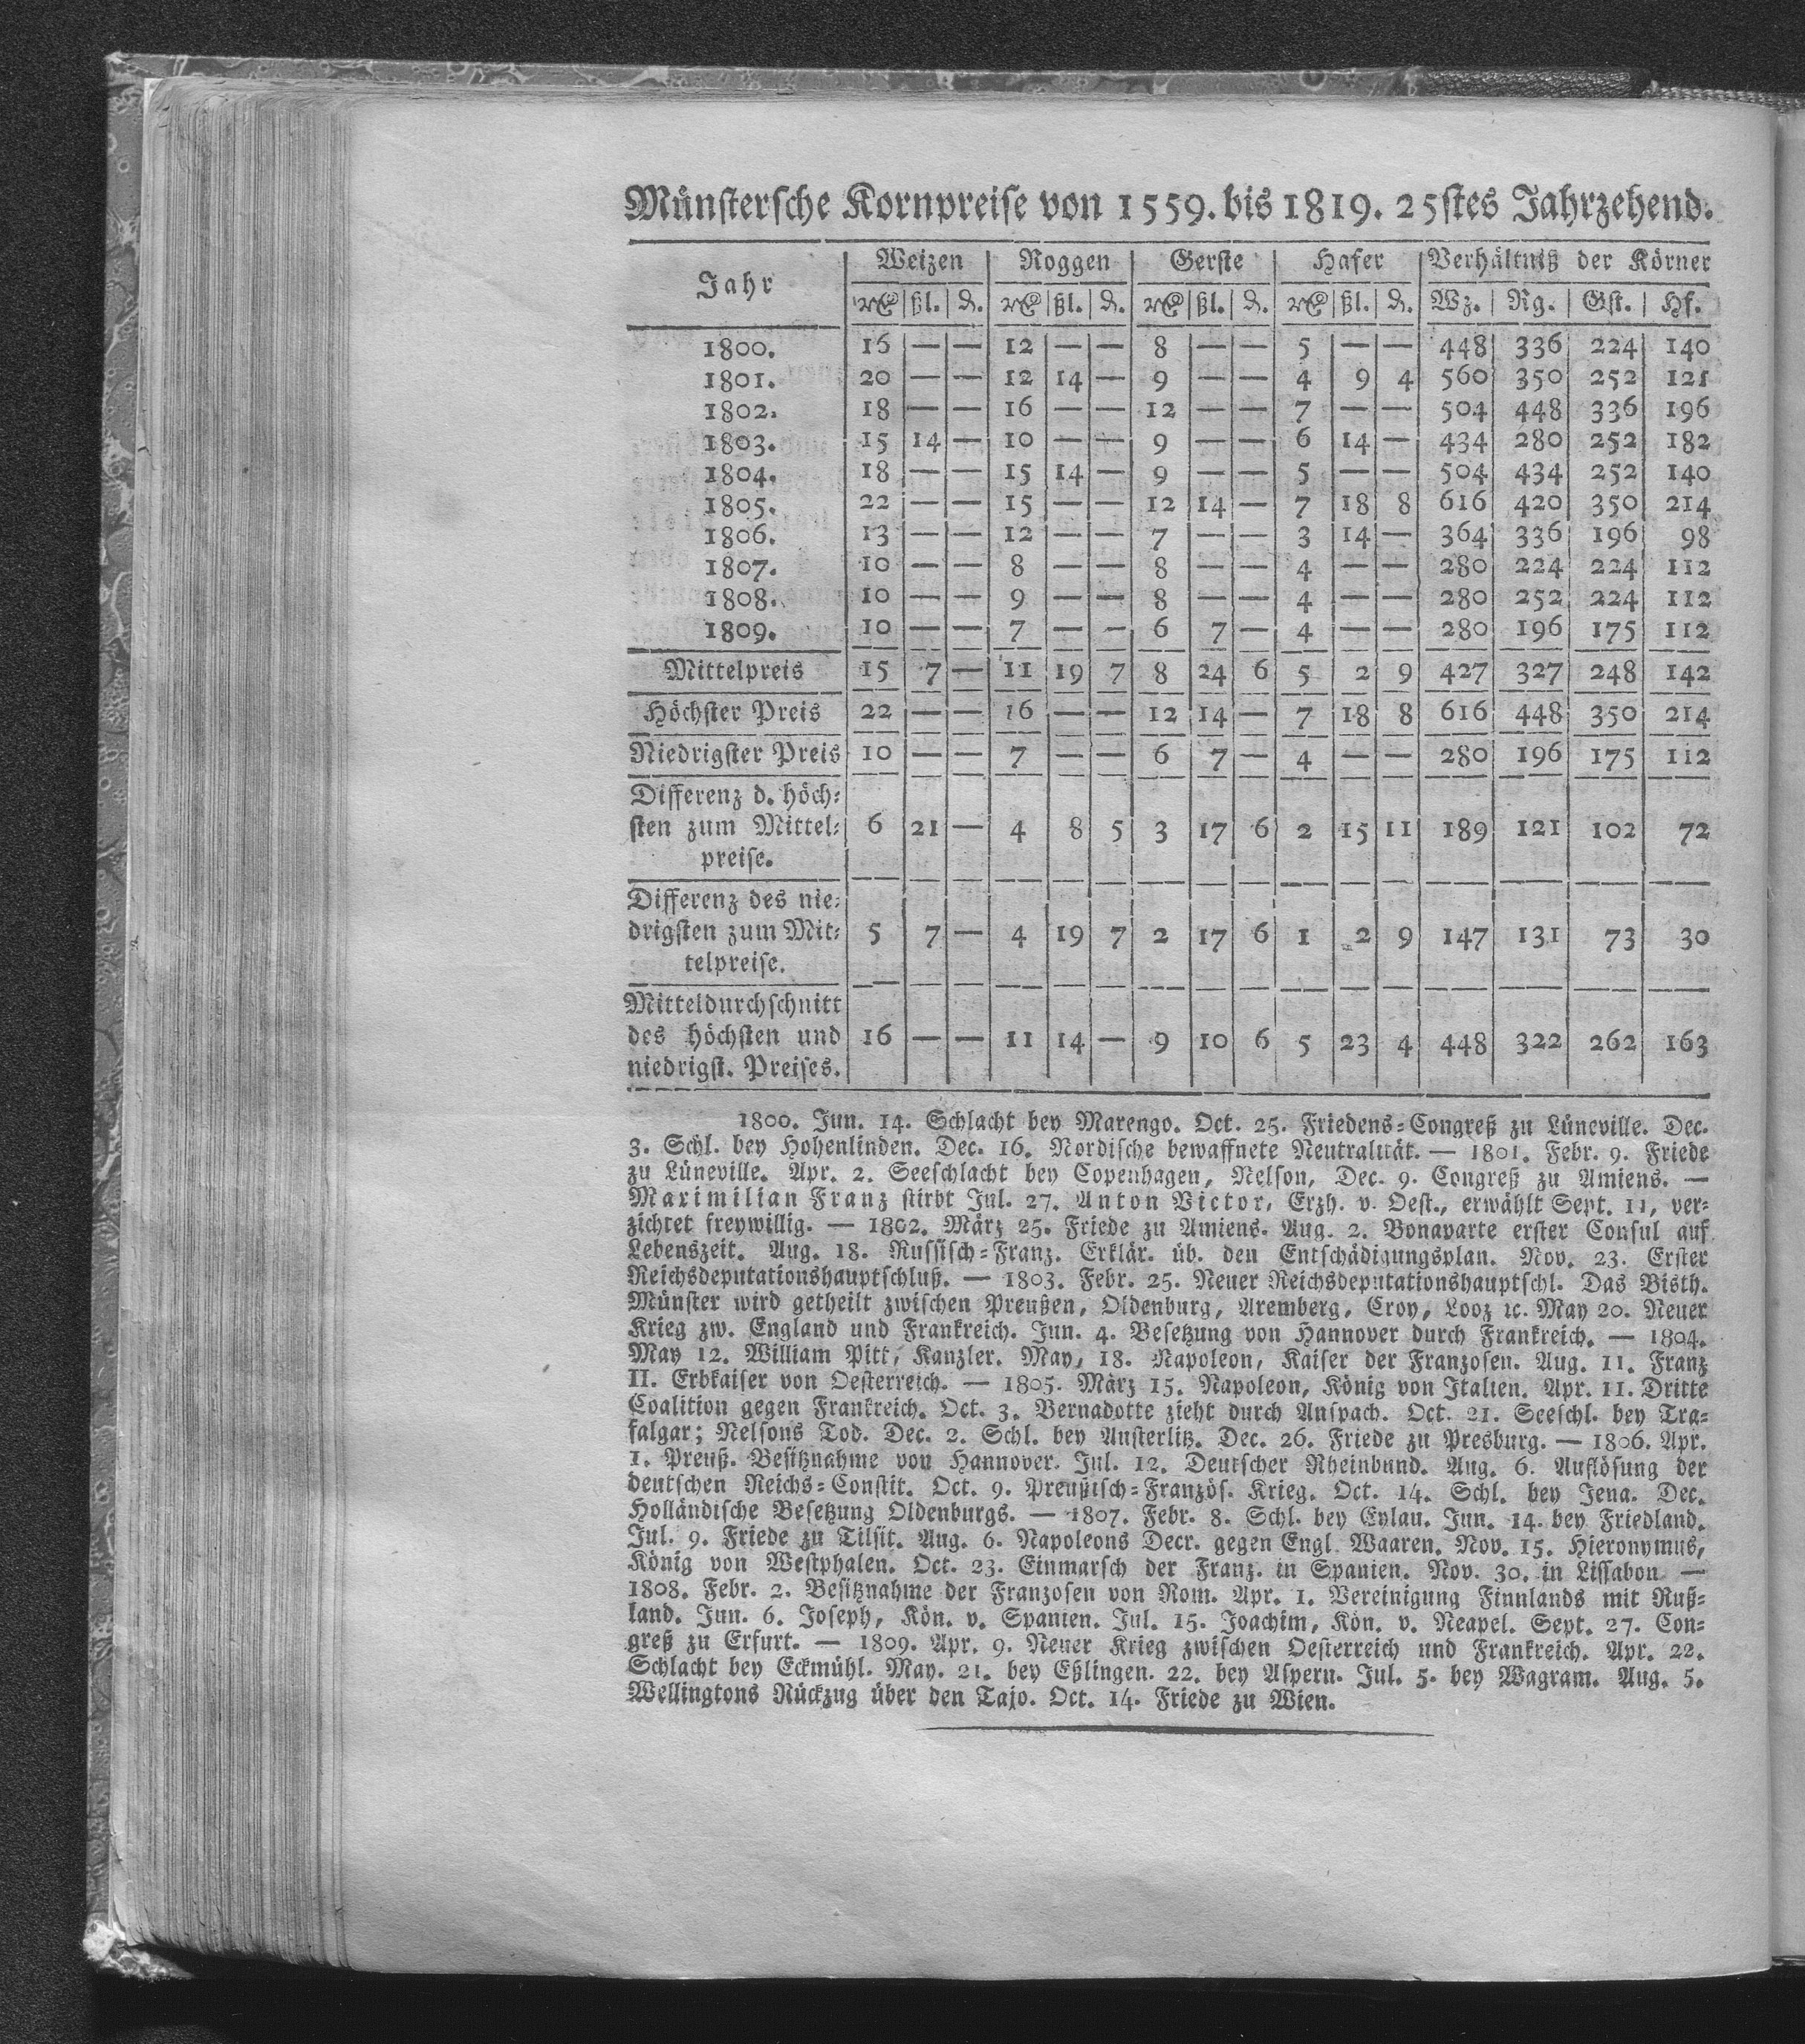 Münstersche Kornpreise von 1559. bis 1819. 25stes Jahrzehend.
Jahr Weizen Roggen Gerste Hafer Verhältniß der Körner
ßl. d. ßl. d. ßl. d. ßl. d. Wz. Rg. Gst. Hf.
1800. 16 — — 12 — — 8 — — 5 — — 448 336 224 140
1801. 20 — — 12 14 — 9 — — 4 9 4 560 350 252 121
1802. 18 — — 16 — — 12 — — 7 — — 504 448 336 196
1803. 15 14 — 10 — — 9 — — 6 14 — 434 280 252 182
1804. 18 — — 15 14 — 9 — — 5 — — 504 434 252 140
1805. 22 — — 15 — — 12 14 — 7 18 8 616 420 350 214
1806. 13 — — 12 — — 7 — — 3 14 — 364 336 196 98
1807. 10 — — 8 — — 8 — — 4 — — 280 224 224 112
1808. 10 — — 9 — — 8 — — 4 — — 280 252 224 112
1809. 10 — — 7 — — 6 7 — 4 — — 280 196 175 112
Mittelpreis 15 7 — 11 19 7 8 24 6 5 2 9 427 327 248 142
Höchster Preis 22 — — 16 — — 12 14 — 7 18 8 616 448 350 214
Niedrigster Preis 10 — — 7 — — 6 7 — 4 — — 280 196 175 112
Differenz d. höch-
sten zum Mittel- 6 21 — 4 8 5 3 17 6 2 15 11 189 121 102 72
preise.
Differenz des nie-
drigsten zum Mit- 5 7 — 4 19 7 2 17 6 1 2 9 147 131 73 30
telpreise.
Mitteldurchschnitt
des höchsten und 16 — — 11 14 — 9 10 6 5 23 4 448 322 262 163
niedrigst. Preises.
1800. Jun. 14. Schlacht bey Marengo. Oct. 25. Friedens-Congreß zu Lüneville. Dec.
3. Schl. bey Hohenlinden. Dec. 16. Nordische bewaffnete Neutralität. — 1801. Febr. 9. Friede
zu Lüneville. Apr. 2. Seeschlacht bey Copenhagen, Nelson, Dec. 9. Congreß zu Amiens. —
Maximilian Franz stirbt Jul. 27. Anton Victor, Erzh. v. Oest., erwählt Sept. 11, ver-
zichtet freywillig. — 1802. März 25. Friede zu Amiens. Aug. 2. Bonaparte erster Consul auf
Lebenszeit. Aug. 18. Russisch-Franz. Erklär. üb. den Entschädigungsplan. Nov. 23. Erster
Reichsdeputationshauptschluß. — 1803. Febr. 25. Neuer Reichsdeputationshauptschl. Das Bisth.
Münster wird getheilt zwischen Preußen, Oldenburg, Aremberg, Croy, Looz ꝛc. May 20. Neuer
Krieg zw. England und Frankreich. Jun. 4. Besetzung von Hannover durch Frankreich. — 1804.
May 12. William Pitt, Kanzler. May, 18. Napoleon, Kaiser der Franzosen. Aug. 11. Franz
II. Erbkaiser von Oesterreich. — 1805. März 15. Napoleon, König von Italien. Apr. 11. Dritte
Coalition gegen Frankreich. Oct. 3. Bernadotte zieht durch Anspach. Oct. 21. Seeschl. bey Tra-
falgar; Nelsons Tod. Dec. 2. Schl. bey Austerlitz. Dec. 26. Friede zu Presburg. — 1806. Apr.
1. Preuß. Besitznahme von Hannover. Jul. 12. Deutscher Rheinbund. Aug. 6. Auflösung der
deutschen Reichs-Constit. Oct. 9. Preußisch-Französ. Krieg. Oct. 14. Schl. bey Jena. Dec.
Holländische Besetzung Oldenburgs. — 1807. Febr. 8. Schl. bey Eylau. Jun. 14. bey Friedland.
Jul. 9. Friede zu Tilsit. Aug. 6. Napoleons Decr. gegen Engl. Waaren. Nov. 15. Hieronymus,
König von Westphalen. Oct. 23. Einmarsch der Franz. in Spanien. Nov. 30. in Lissabon —
1808. Febr. 2. Besitznahme der Franzosen von Rom. Apr. 1. Vereinigung Finnlands mit Ruß-
land. Jun. 6. Joseph, Kön. v. Spanien. Jul. 15. Joachim, Kön. v. Neapel. Sept. 27. Con-
greß zu Erfurt. — 1809. Apr. 9. Neuer Krieg zwischen Oesterreich und Frankreich. Apr. 22.
Schlacht bey Eckmühl. May. 21. bey Eßlingen. 22. bey Aspern. Jul. 5. bey Wagram. Aug. 5.
Wellingtons Rückzug über den Tajo. Oct. 14. Friede zu Wien.